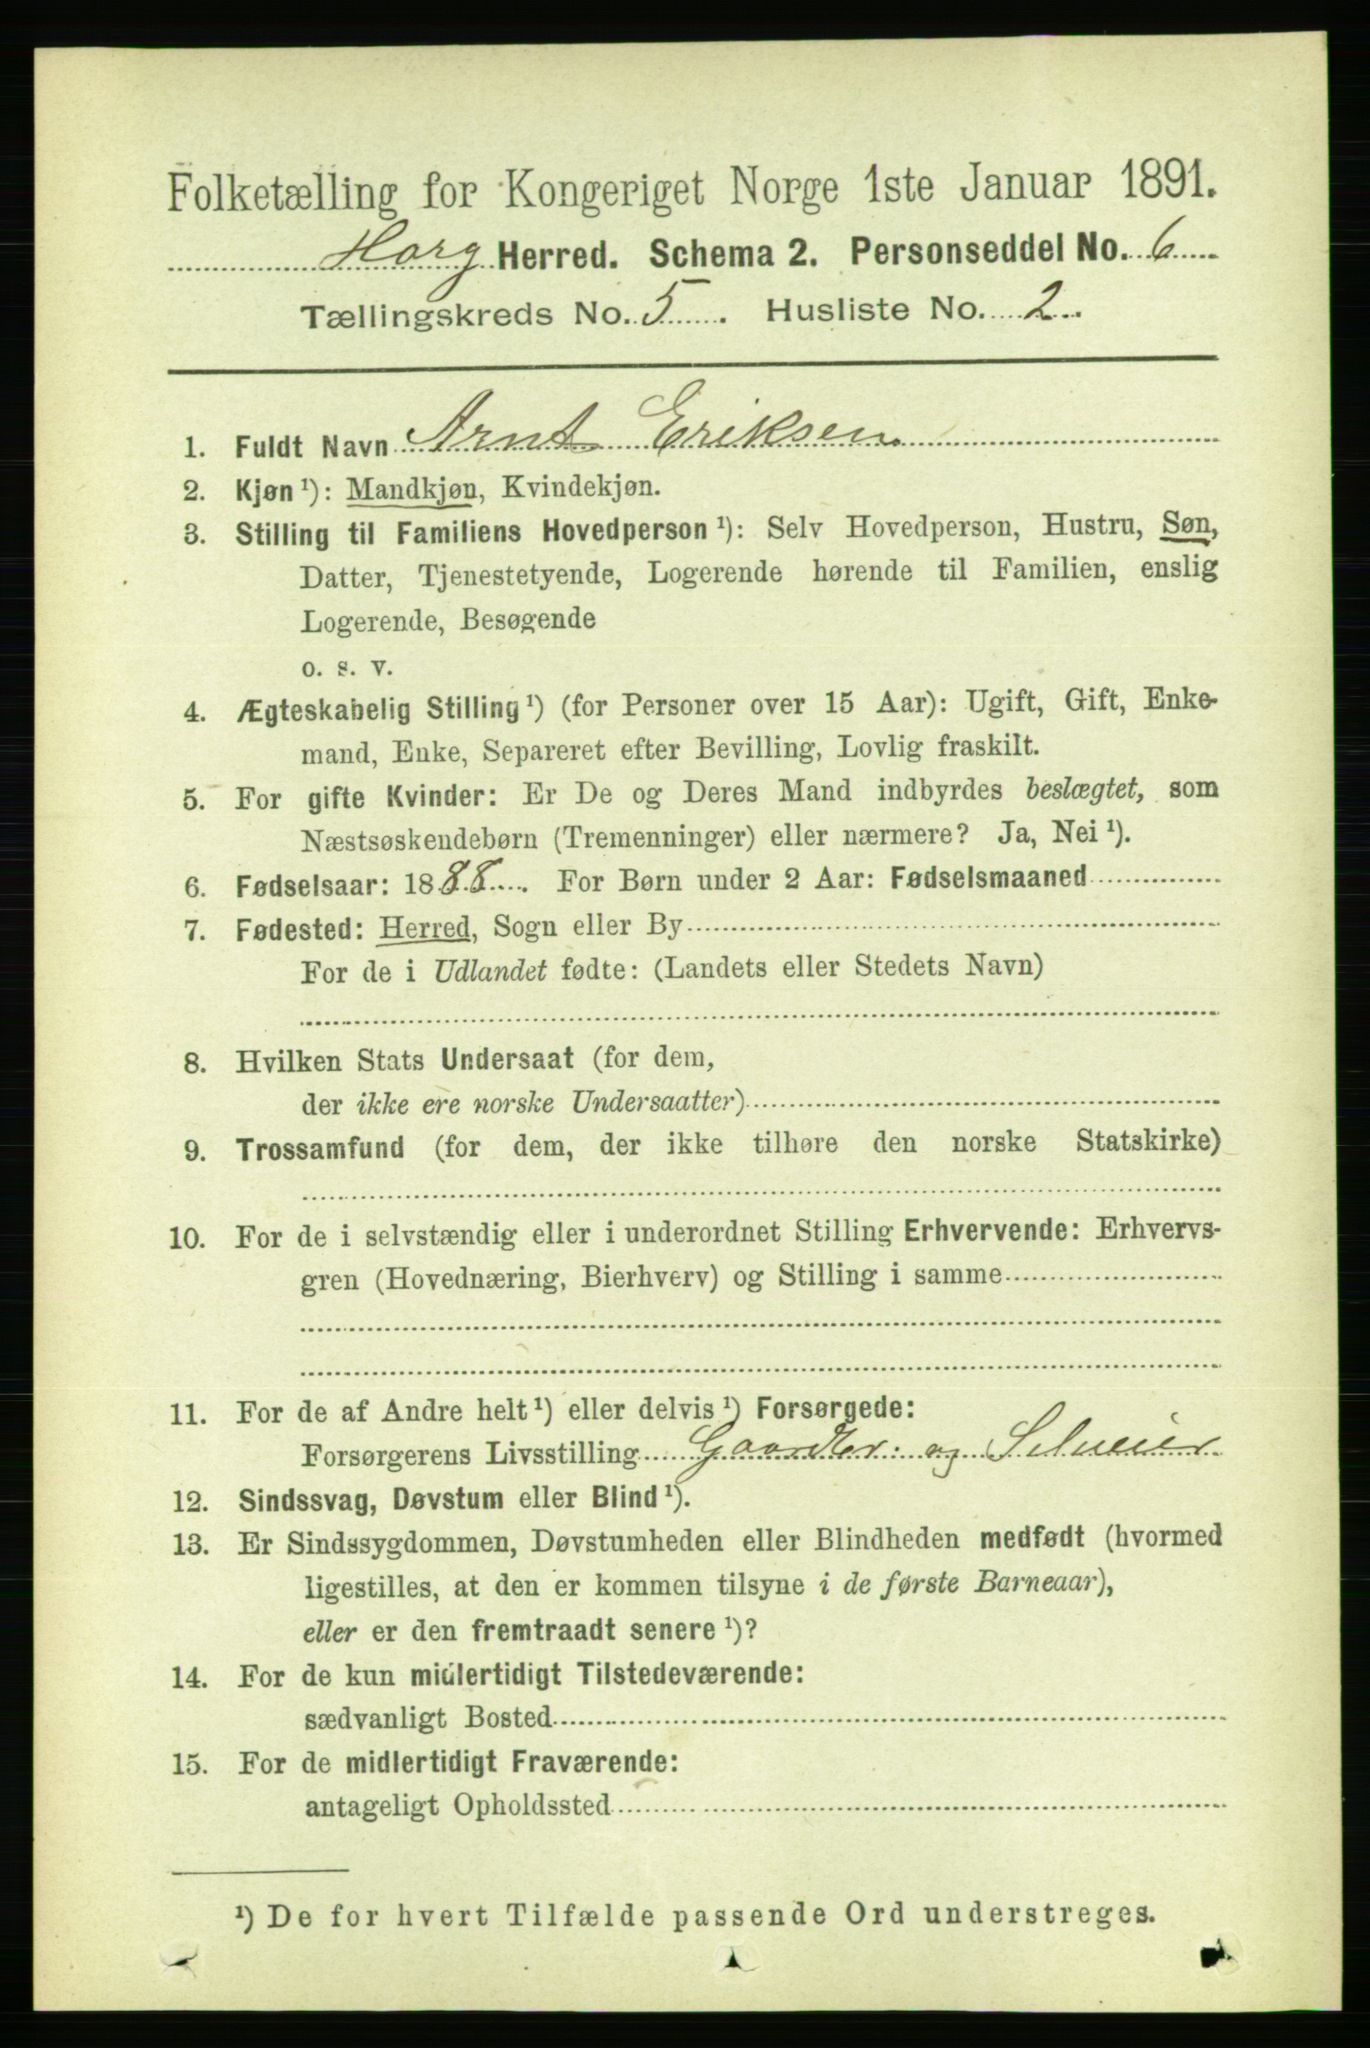 Folketælling for Kongeriget Norge 1ste Januar 1891.
Horg Herred. Schema 2. Personseddel No. 6
Tællingskreds No. 5. Husliste No. 2.
1. Fuldt Navn Arnt Eriksen
2. Kjøn ¹): Mandkjøn, Kvindekjøn.
3. Stilling til Familiens Hovedperson ¹): Selv Hovedperson, Hustru, Søn,
Datter, Tjenestetyende, Logerende hørende til Familien, enslig
Logerende, Besøgende
o. s. v.
4. Ægteskabelig Stilling ¹) (for Personer over 15 Aar): Ugift, Gift, Enke-
mand, Enke, Separeret efter Bevilling, Lovlig fraskilt.
5. For gifte Kvinder: Er De og Deres Mand indbyrdes beslægtet, som
Næstsøskendebørn (Tremenninger) eller nærmere? Ja, Nei ¹).
6. Fødselsaar: 1888. For Børn under 2 Aar: Fødselsmaaned
7. Fødested: Herred, Sogn eller By
For de i Udlandet fødte: (Landets eller Stedets Navn)
8. Hvilken Stats Undersaat (for dem,
der ikke ere norske Undersaatter)
9. Trossamfund (for dem, der ikke tilhøre den norske Statskirke)
10. For de i selvstændig eller i underordnet Stilling Erhvervende: Erhvervs-
gren (Hovednæring, Bierhverv) og Stilling i samme
11. For de af Andre helt ¹) eller delvis ¹) Forsørgede:
Forsørgerens Livsstilling Gaardbr. og Selveier
12. Sindssvag, Døvstum eller Blind ¹).
13. Er Sindssygdommen, Døvstumheden eller Blindheden medfødt (hvormed
ligestilles, at den er kommen tilsyne i de første Barneaar),
eller er den fremtraadt senere ¹)?
14. For de kun midlertidigt Tilstedeværende:
sædvanligt Bosted
15. For de midlertidigt Fraværende:
antageligt Opholdssted
¹) De for hvert Tilfælde passende Ord understreges.